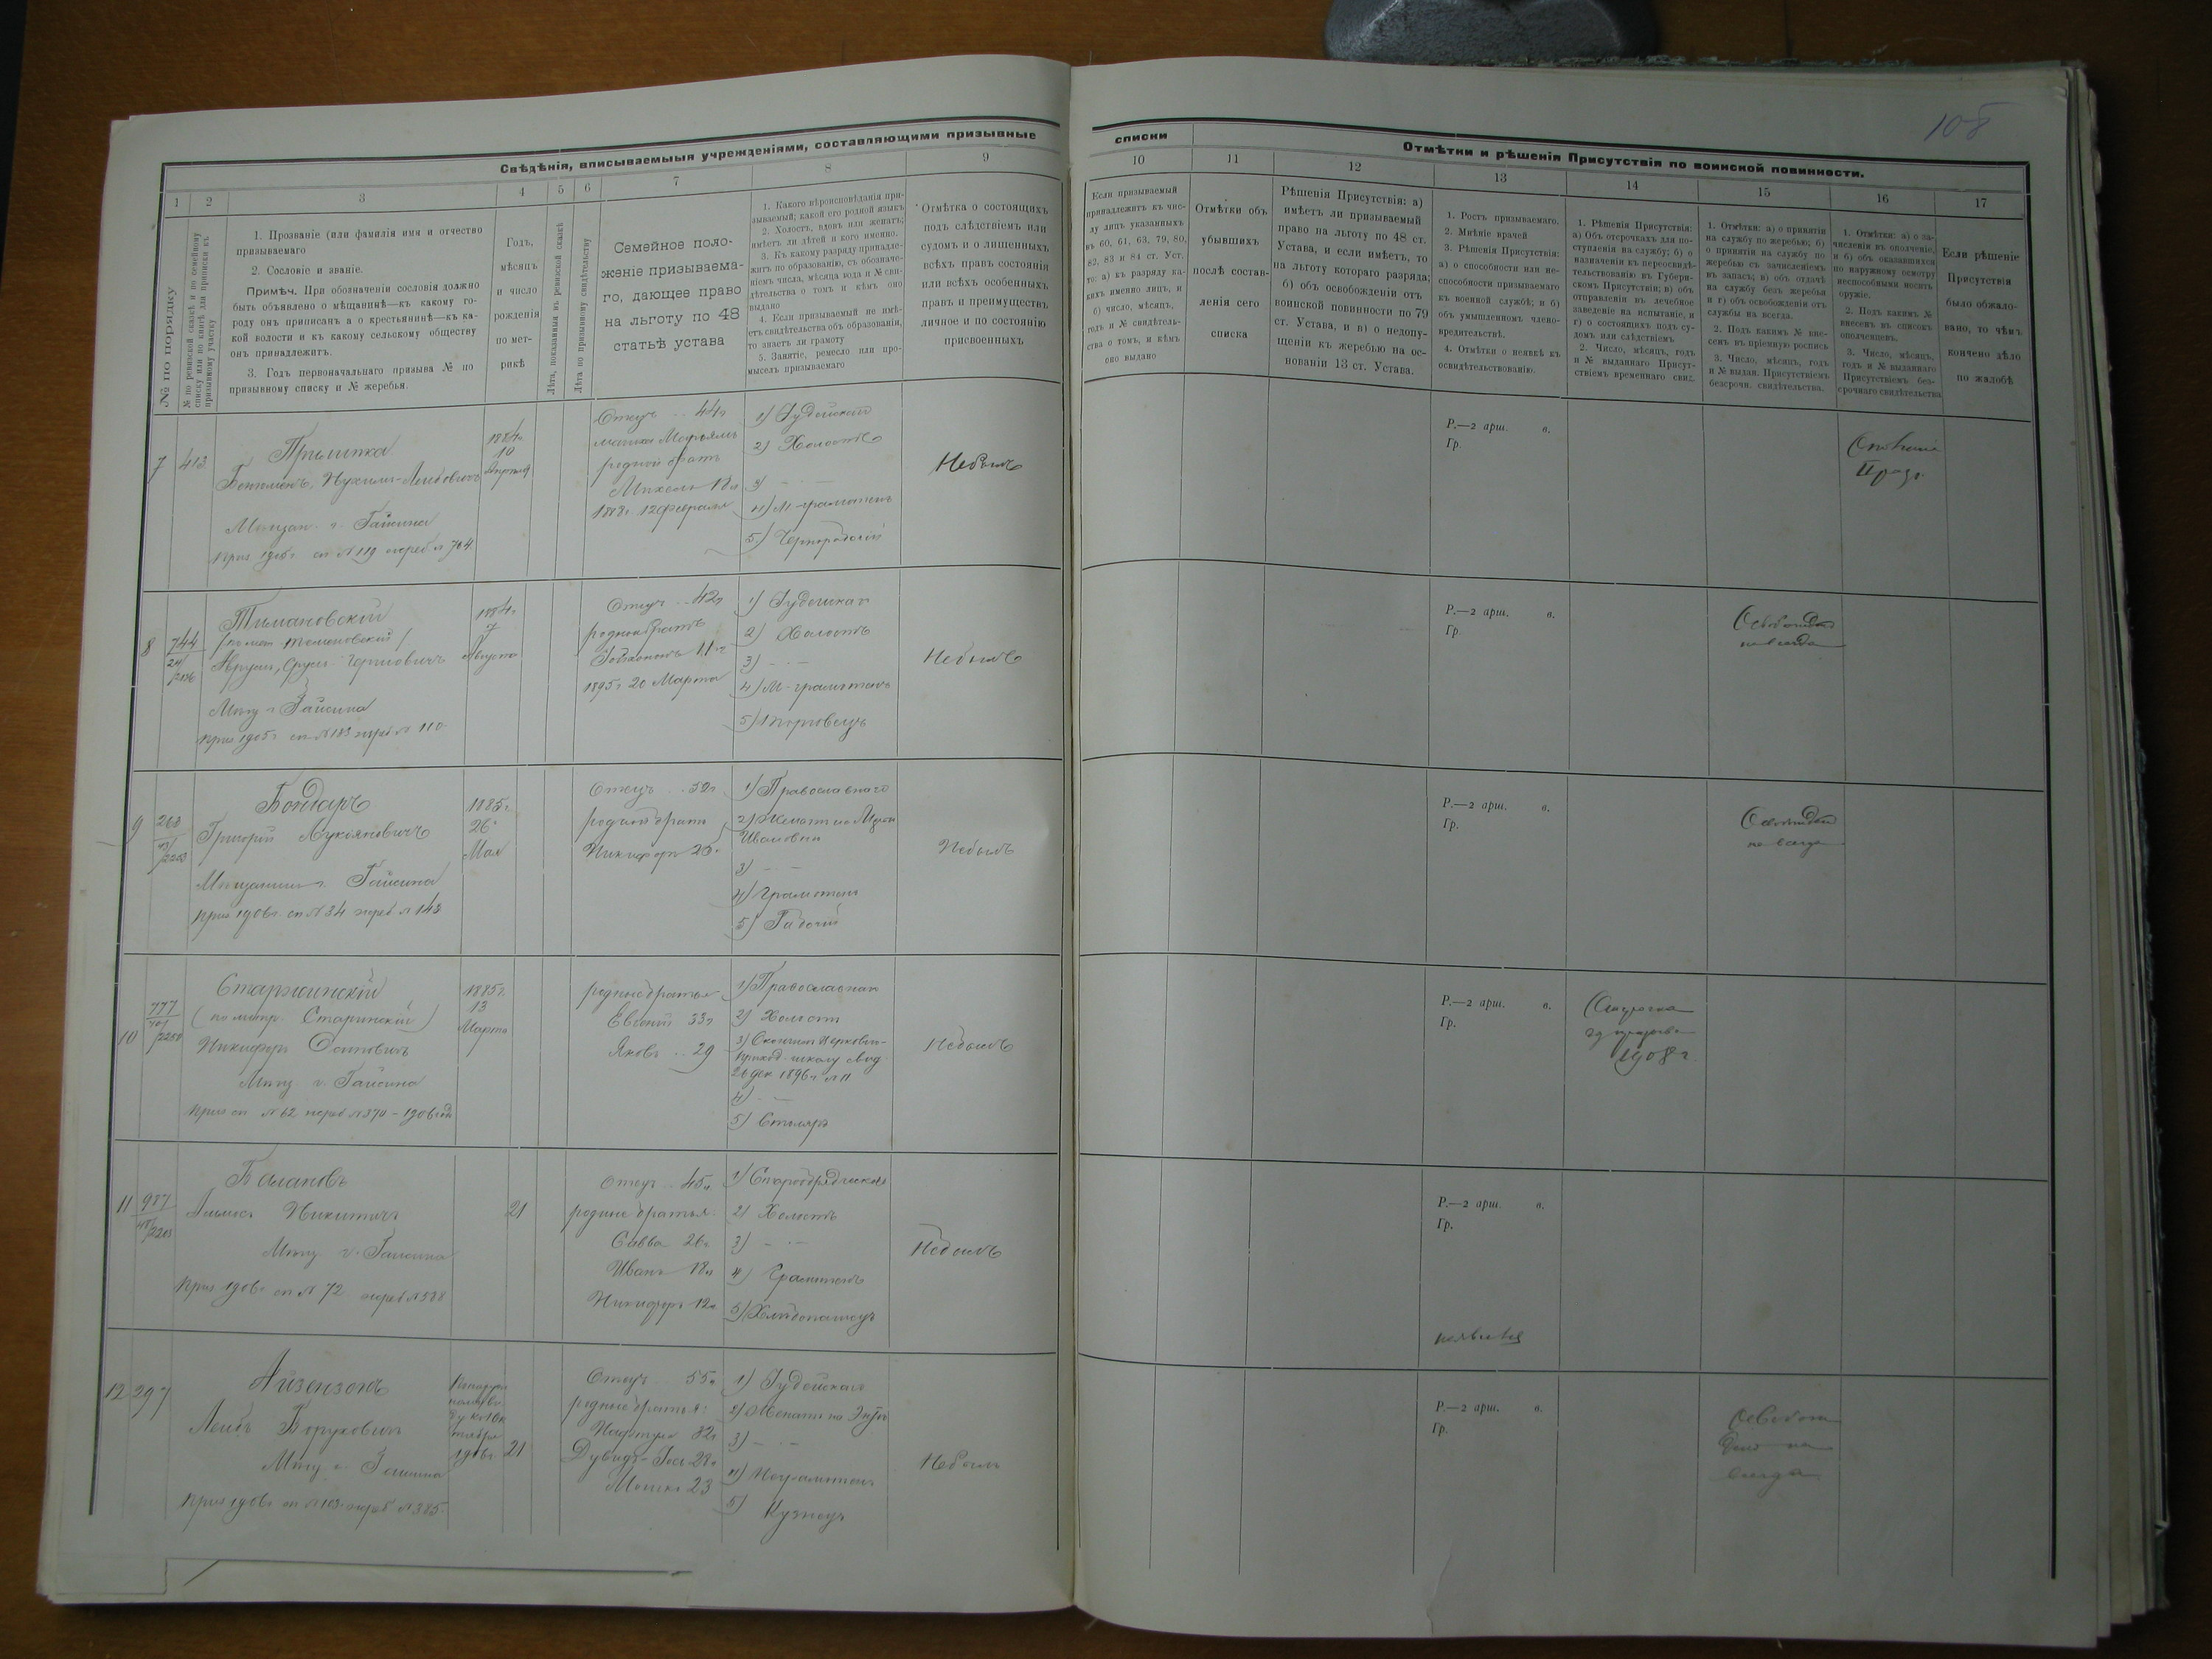 108
Свѣдѣнія, вписываемыя учрежденіями, составляющими призывные
списки
Отмѣтки и рѣшенія Присутствія по воинской повинности.
1 2 3 4 5 6 7 8 9
10 11 12 13 14 15 16 17
№ по порядку
№ по ревизской сказкѣ и по семейному
списку или по книгѣ для приписки къ
призывному участку
1. Прозваніе (или фамилія имя и отчество
призываемаго
2. Сословіе и званіе.
Примѣч. При обозначеніи сословія должно
быть объявлено о мѣщанинѣ—къ какому го-
роду онъ приписанъ а о крестьянинѣ—къ ка-
кой волости и къ какому сельскому обществу
онъ принадлежитъ.
3. Годъ первоначальнаго призыва № по
призывному списку и № жеребья.
Годъ,
мѣсяцъ
и число
рожденія
по мет-
рикѣ
Лѣта, показанныя въ ревизской сказкѣ
Лѣта по призывному свидѣтельству
Семейное поло-
женіе призываема-
го, дающее право
на льготу по 48
статьѣ устава
1. Какого вѣроисповѣданія при-
зываемый; какой его родной языкъ
2. Холостъ, вдовъ или женатъ;
имѣетъ ли дѣтей и кого именно.
3. Къ какому разряду принадле-
житъ по образованію, съ обозначе-
ніемъ числа, мѣсяца года и № сви-
дѣтельства о томъ и кѣмъ оно
выдано
4. Если призываемый не имѣ-
етъ свидѣтельства объ образованіи,
то знаетъ ли грамоту
5. Занятіе, ремесло или про-
мыселъ призываемаго
Отмѣтка о состоящихъ
подъ слѣдствіемъ или
судомъ и о лишенныхъ
всѣхъ правъ состоянія
или всѣхъ особенныхъ
правъ и преимуществъ
личное и по состоянію
присвоенныхъ
Если призываемый
принадлежитъ къ чис-
лу лицъ указанныхъ
въ 60, 61, 63, 79, 80,
82, 83 и 84 ст. Уст.
то: а) къ разряду ка-
кихъ именно лицъ, и
б) число, мѣсяцъ,
годъ и № свидѣтель-
ства о томъ, и кѣмъ
оно выдано
Отмѣтки объ
убывшихъ
послѣ состав-
ленія сего
списка
Рѣшенія Присутствія: а)
имѣетъ ли призываемый
право на льготу по 48 ст.
Устава, и если имѣетъ, то
на льготу котораго разряда;
б) объ освобожденіи отъ
воинской повинности по 79
ст. Устава, и в) о недопу-
щеніи къ жеребью на ос-
нованіи 13 ст. Устава.
1. Ростъ призываемаго.
2. Мнѣніе врачей
3. Рѣшенія Присутствія:
а) о способности или не-
способности призываемаго
къ военной службѣ; и б)
объ умышленномъ члено-
вредительствѣ.
4. Отмѣтки о неявкѣ къ
освидѣтельствованію.
1. Рѣшенія Присутствія:
а) Объ отсрочкахъ для по-
ступленія на службу; б) о
назначеніи къ переосвидѣ-
тельствованію въ Губерн-
скомъ Присутствіи; в) объ
отправленіи въ лечебное
заведеніе на испытаніе, и
г) о состоящихъ подъ су-
домъ или слѣдствіемъ
2. Число, мѣсяцъ, годъ
и № выданнаго Присут-
ствіемъ временнаго свид.
1. Отмѣтки: а) о принятіи
на службу по жеребью; б)
о принятіи на службу по
жеребью съ зачисленіемъ
въ запасъ; в) объ отдачѣ
на службу безъ жеребья
и г) объ освобожденіи отъ
службы на всегда.
2. Подъ какимъ № вне-
сенъ въ пріемную роспись
3. Число, мѣсяцъ, годъ
и № выдан. Присутствіемъ
безсрочн. свидѣтельства.
1. Отмѣтки: а) о за-
численіи въ ополченіе,
и б) объ оказавшихся
по наружному осмотру
неспособными носить
оружіе.
2. Подъ какимъ №
внесенъ въ списокъ
ополченцевъ.
3. Число, мѣсяцъ,
годъ и № выданнаго
Присутствіемъ без-
срочнаго свидѣтельства
Если рѣшеніе
Присутствія
было обжало-
вано, то чѣмъ
кончено дѣло
по жалобѣ
7 413
Нухимъ-Лейбовичъ
г. Гайсина
Приз 1905г сп №119 жереб № 704
1884г.
10
Апрѣля
Отецъ .. 44г
родной братъ
18л
12 Февраля
1) Іудейской
2) Холостъ
3) — · —
4) М-грамотенъ
5) Чернорабочій
Небылъ
Р.—2 арш. в.
Гр.
8 744
Тимановскій
Мѣщ г Гайсина
приз 1905г сп №183 жереб № 110
1884г
7
Августа
Отецъ .. 42г
родной братъ
11л
1895г 20 Марта
1) Іудейская
2) Холостъ
3) — · —
4) М-грамотенъ
5) Торговецъ
Небылъ
Р.—2 арш. в.
Гр.
Освобожденъ
навсегда
9 268
43/2253
Бондаръ
Григорій Лукіяновичъ
Мѣщанинъ г. Гайсина
приз 1906г. сп №34 жереб № 143
1885г.
26
Мая
Отецъ .. 52г
родной братъ
Никифоръ 25г
1) Православнаго
Ивановой
3) — · —
4) Грамотенъ
5) Рабочій
Небылъ
Р.—2 арш. в.
Гр.
Освобожденъ
навсегда
10 777
Старжинскій
(по метр. Старинскій)
Никифоръ Осиповичъ
Мѣщ г. Гайсина
приз сп №62 жереб №370 — 1906 года
1885г.
13
Марта
родные братья
Евгеній 33г
Яковъ .. 29
1) Православная
2) Холостъ
3) Окончилъ Церковно-
приход. школу свид.
26 дек 1896г №11
4) · —
5) Столяръ
Небылъ
Р.—2 арш. в.
Гр.
Отсрочка
1908г.
11 987
Балановъ
Никитичъ
Мѣщ г. Гайсина
приз 1906г сп №72 жереб №588
21
Отецъ .. 45л
родные братья:
Савва 26г
Иванъ 18л
Никифоръ 12л
1) Старообрядческая
2) Холостъ
3) — · —
4) Грамотенъ
5) Хлѣбопашецъ
Небылъ
Р.—2 арш. в.
Гр.
неявился
12 297
Айзензонъ
Лейбъ Боруховичъ
Мѣщ г. Гайсина
приз 1906г сп №103 жереб №385
1906г. 21
Отецъ 55л
родные братья:
Нафтула 32г
28л
Мошко 23
1) Іудейская
3) — · —
4) Неграмотенъ
5) Кузнецъ
Небылъ
Р.—2 арш. в.
Гр.
Освобож
денъ на
всегда